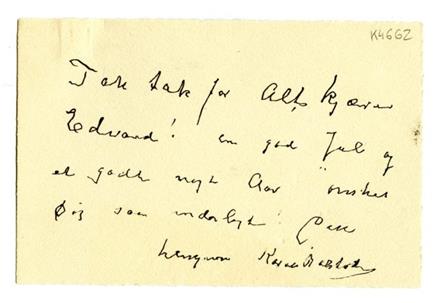 K4662
Tak tak for Alt, kjære
Edward! en god Jul og
et godt nyt Aar ønsker
Dig saa inderligt!